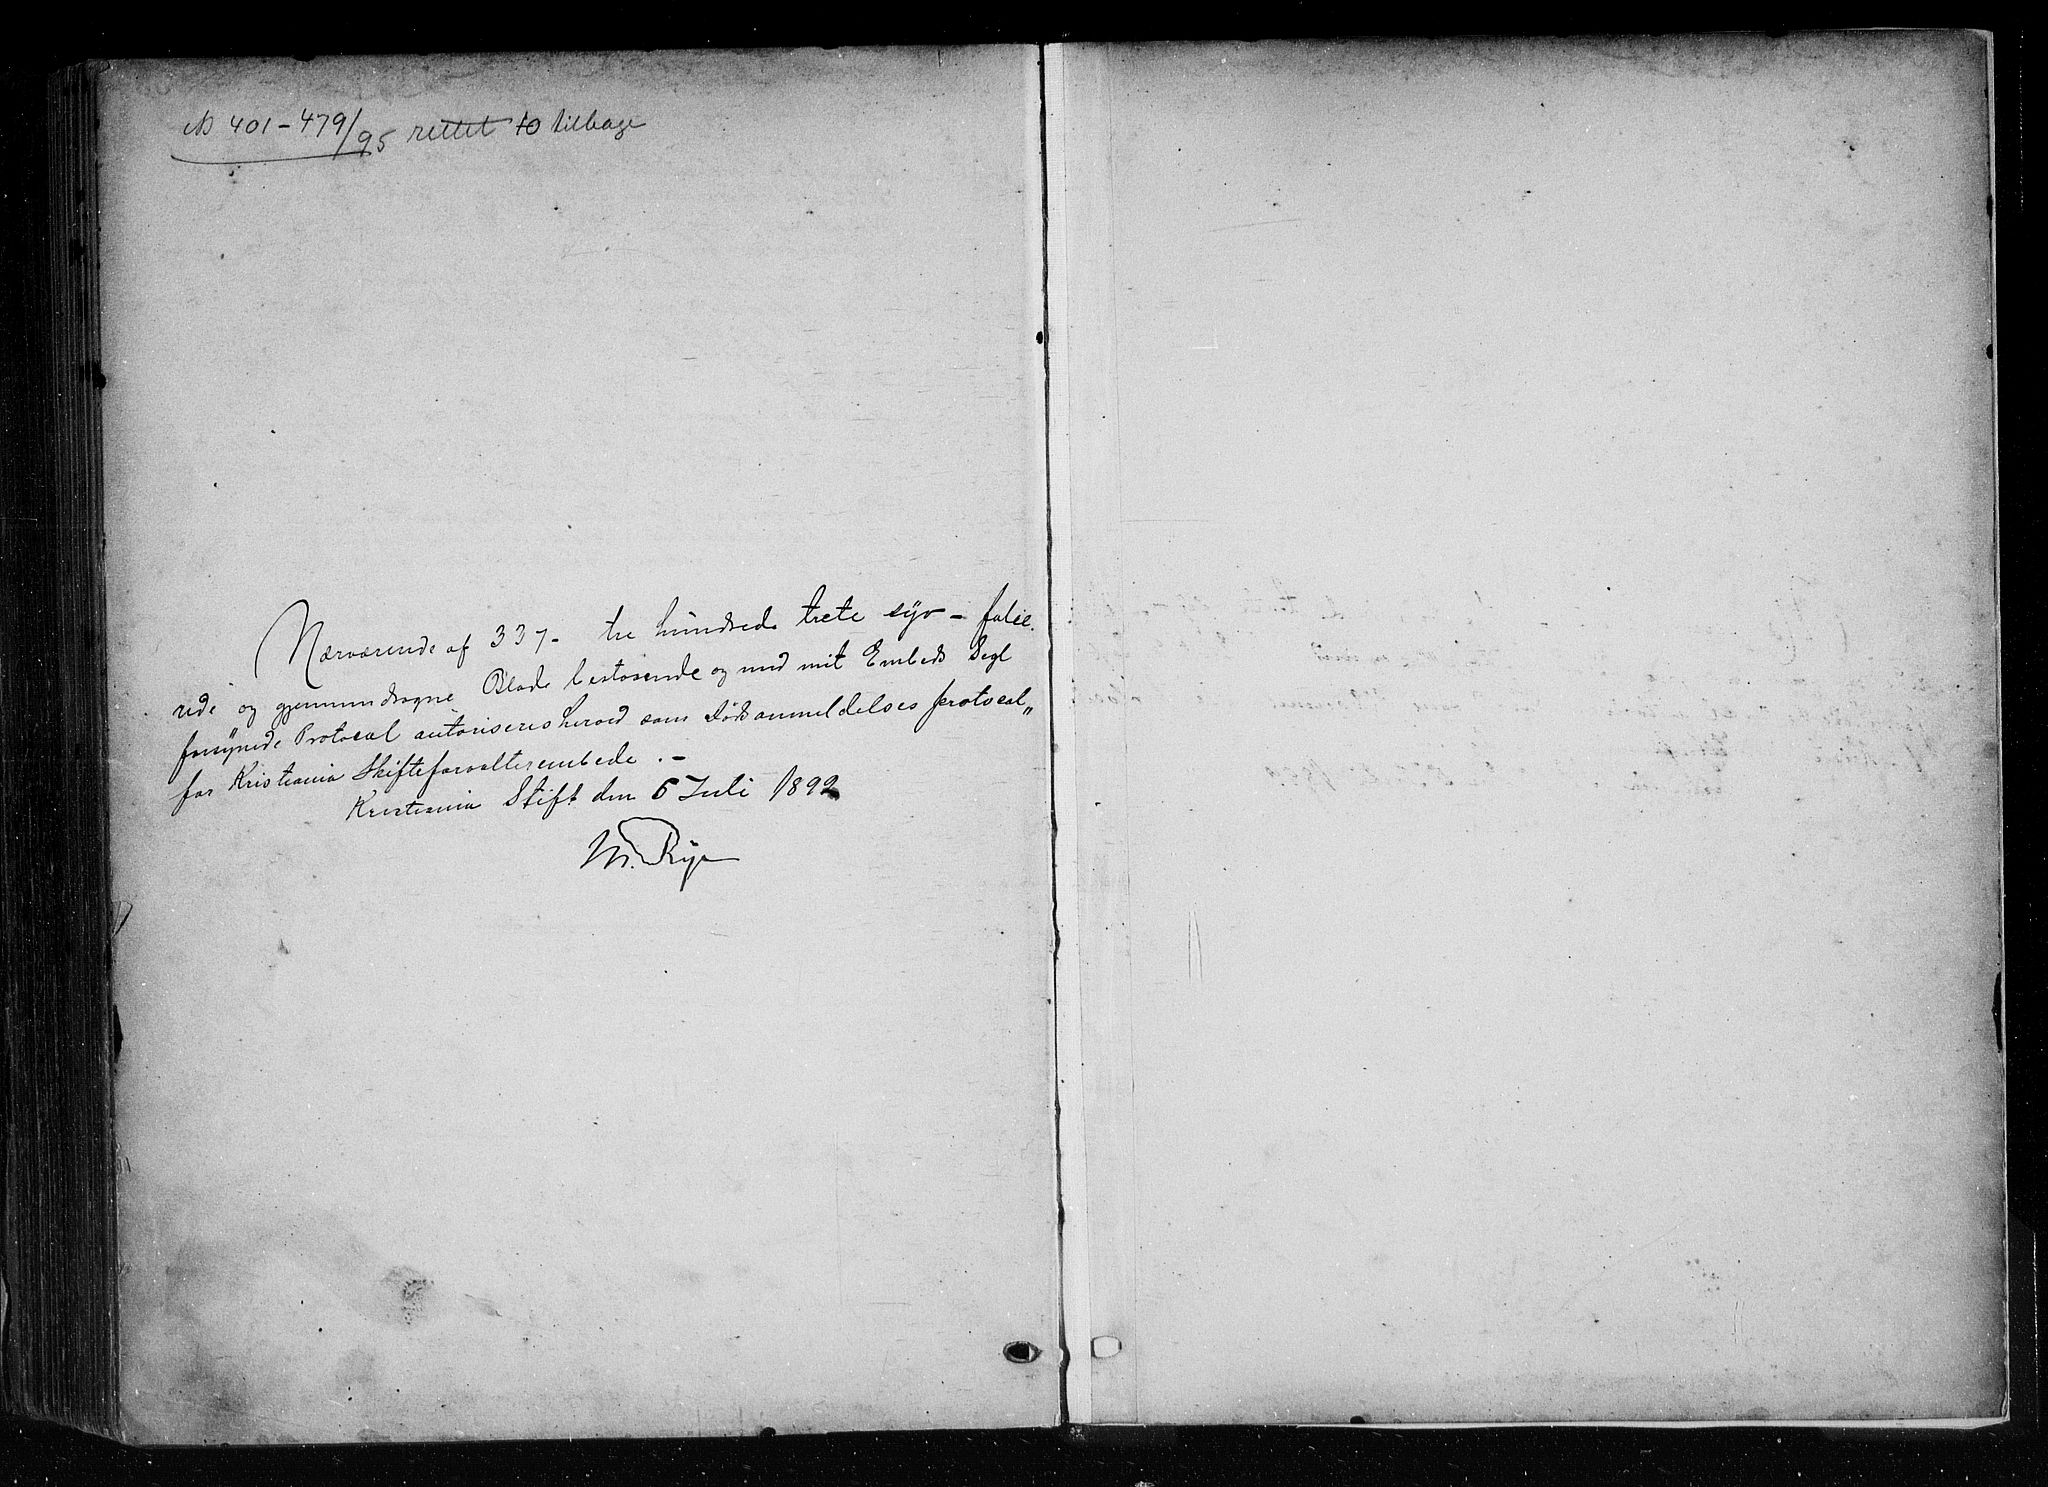 No 401-479/95 rettet 10 tilbage
Nærværende af 337- tre hundrede trete syv - folie
rede og gjennemdragne Blade bestaaende og med mit Embeds Segl
forsynede Protocol autoriseres herved som Dødsanmeldelsesprotocol„
for Kristiania Skifteforvalterembede. -
Kristiania Stift den 5 Juli 1892
M. Rye